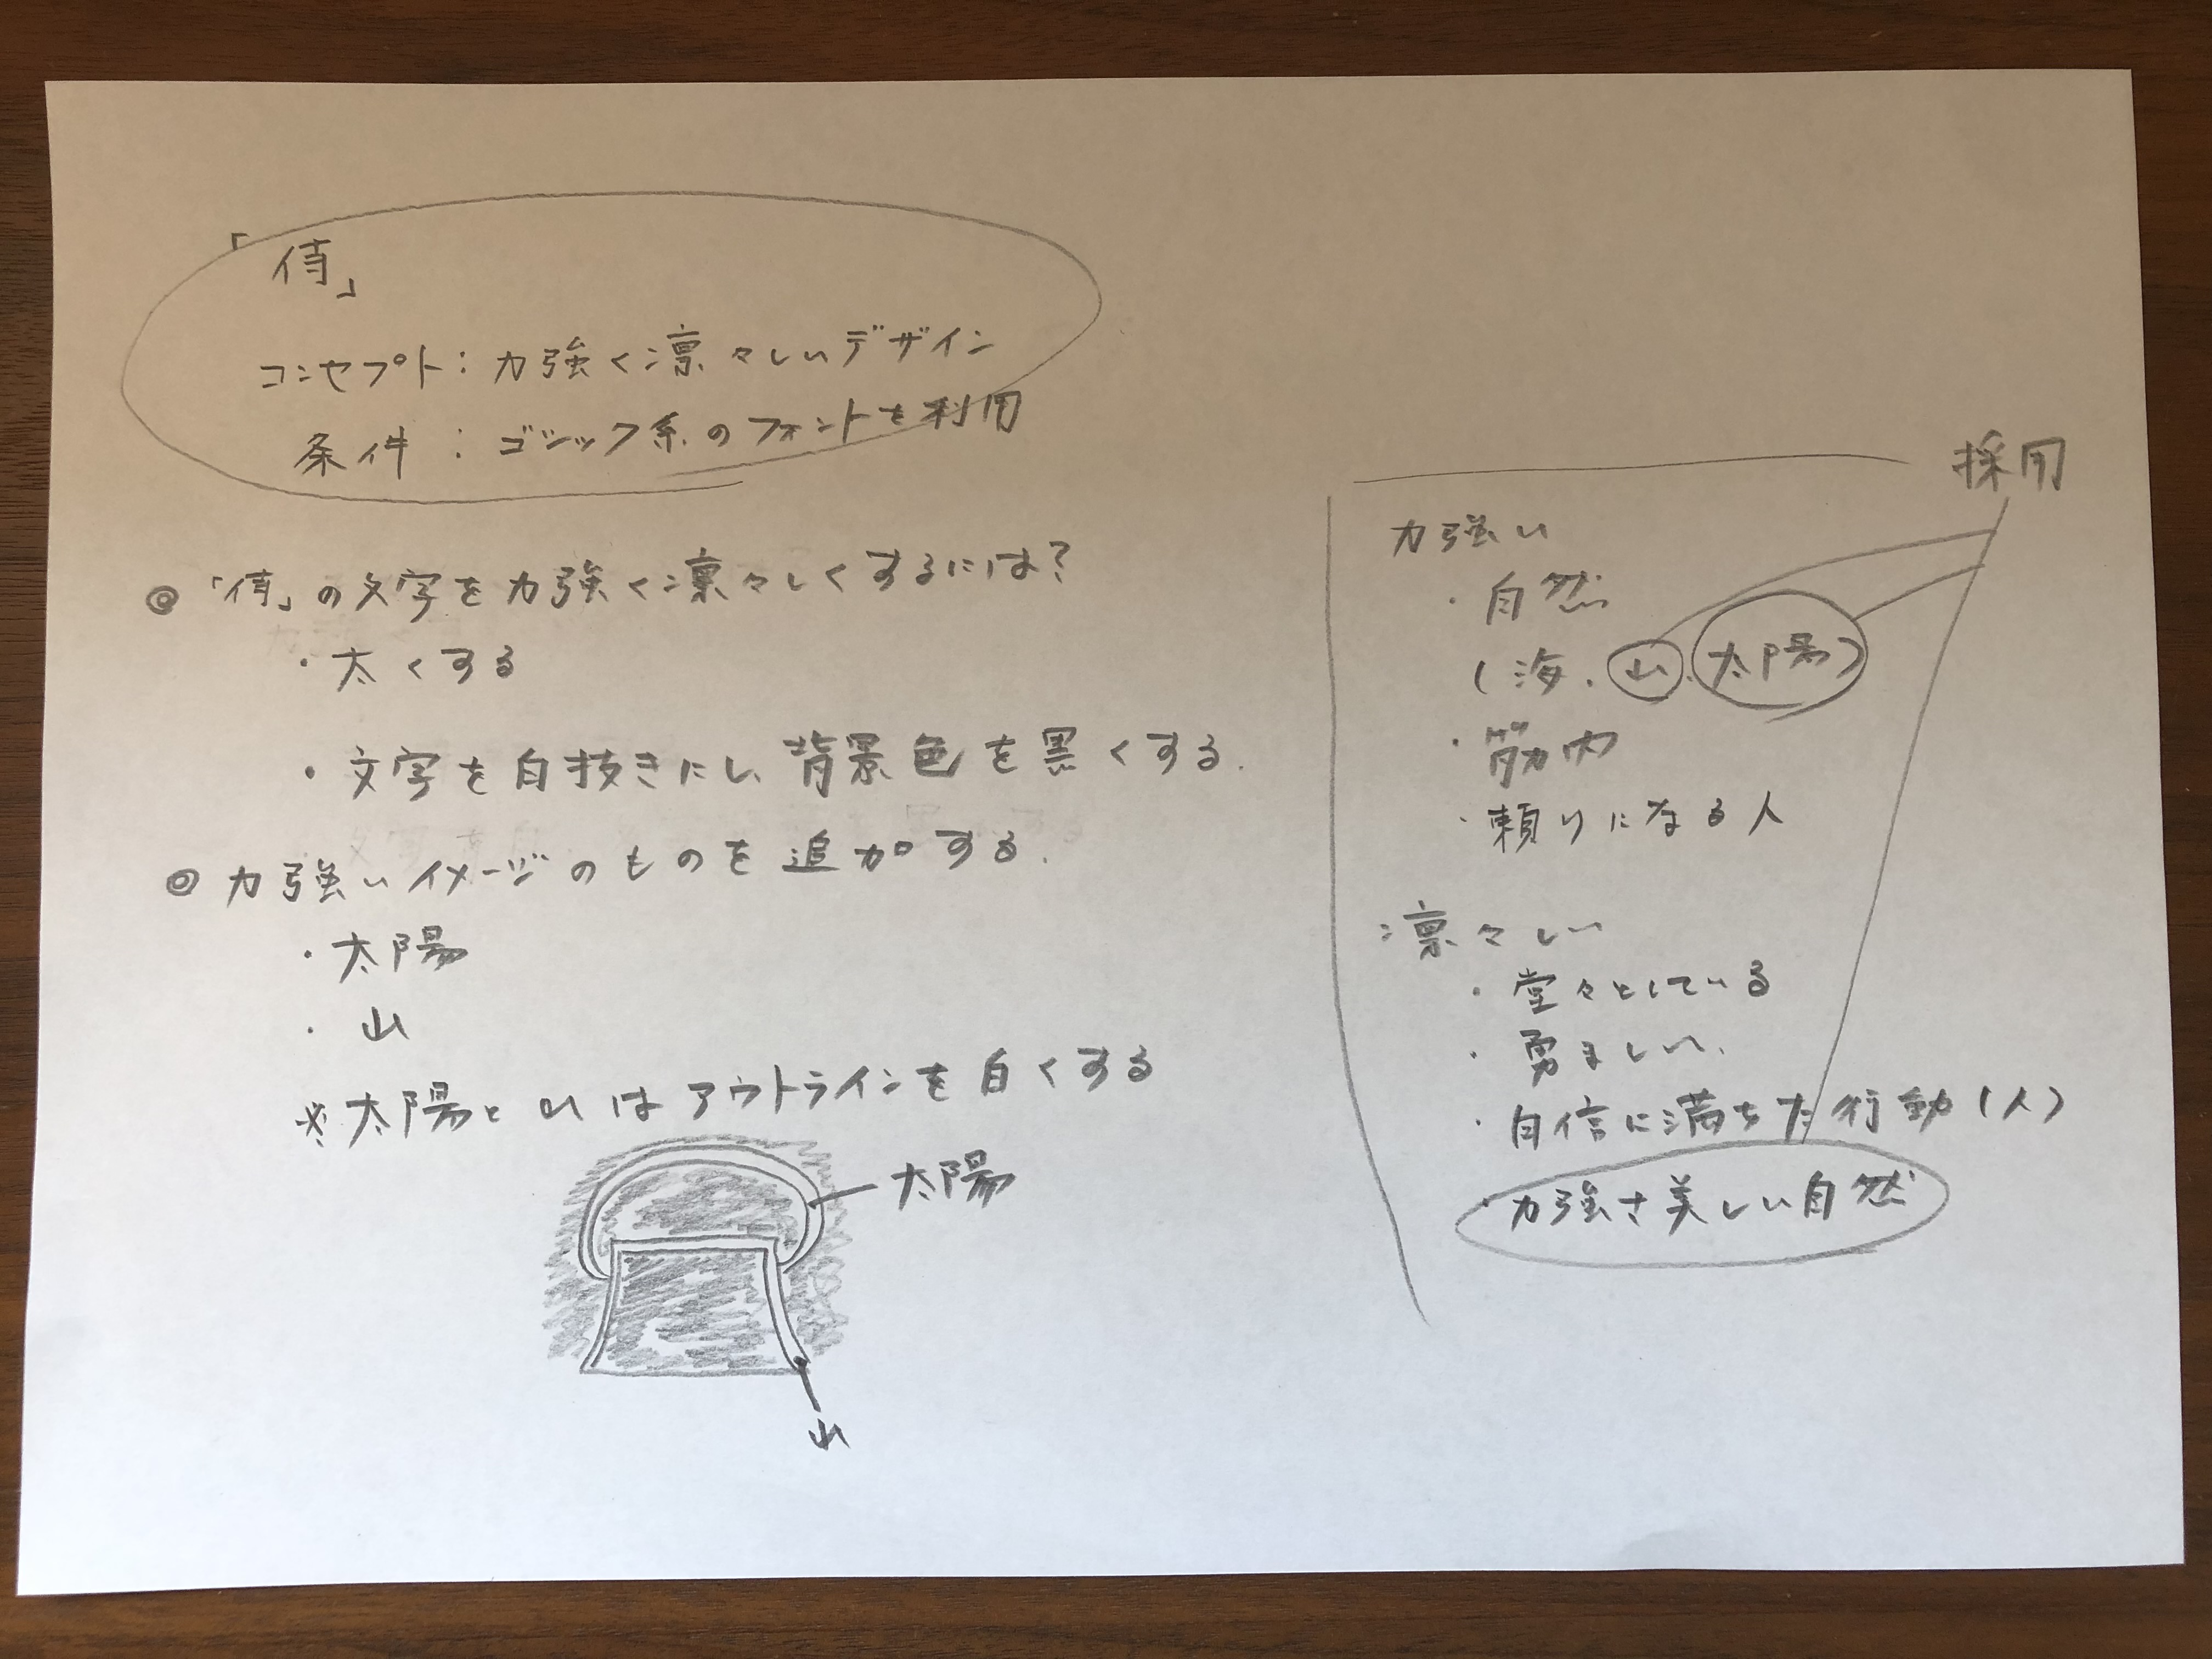 「倖」
コンセプト:力強く凛々しいデザイン
条件:ゴシック系のフォントを利用
◎「倖」の文字を力強く凛々しくするには?
・太くする
・文字を白抜きにし、背景色を黒くする.
◎力強いイメージのものを追加する.
・太陽
・山
※太陽と山はアウトラインを白くする
太陽
山
力強い
・自然
(海・山・太陽)
・筋肉
・頼りになる人
凛々しい
・堂々としている
・勇ましい、
・自信に満ちた行動(人)
力強+美しい自然
採用